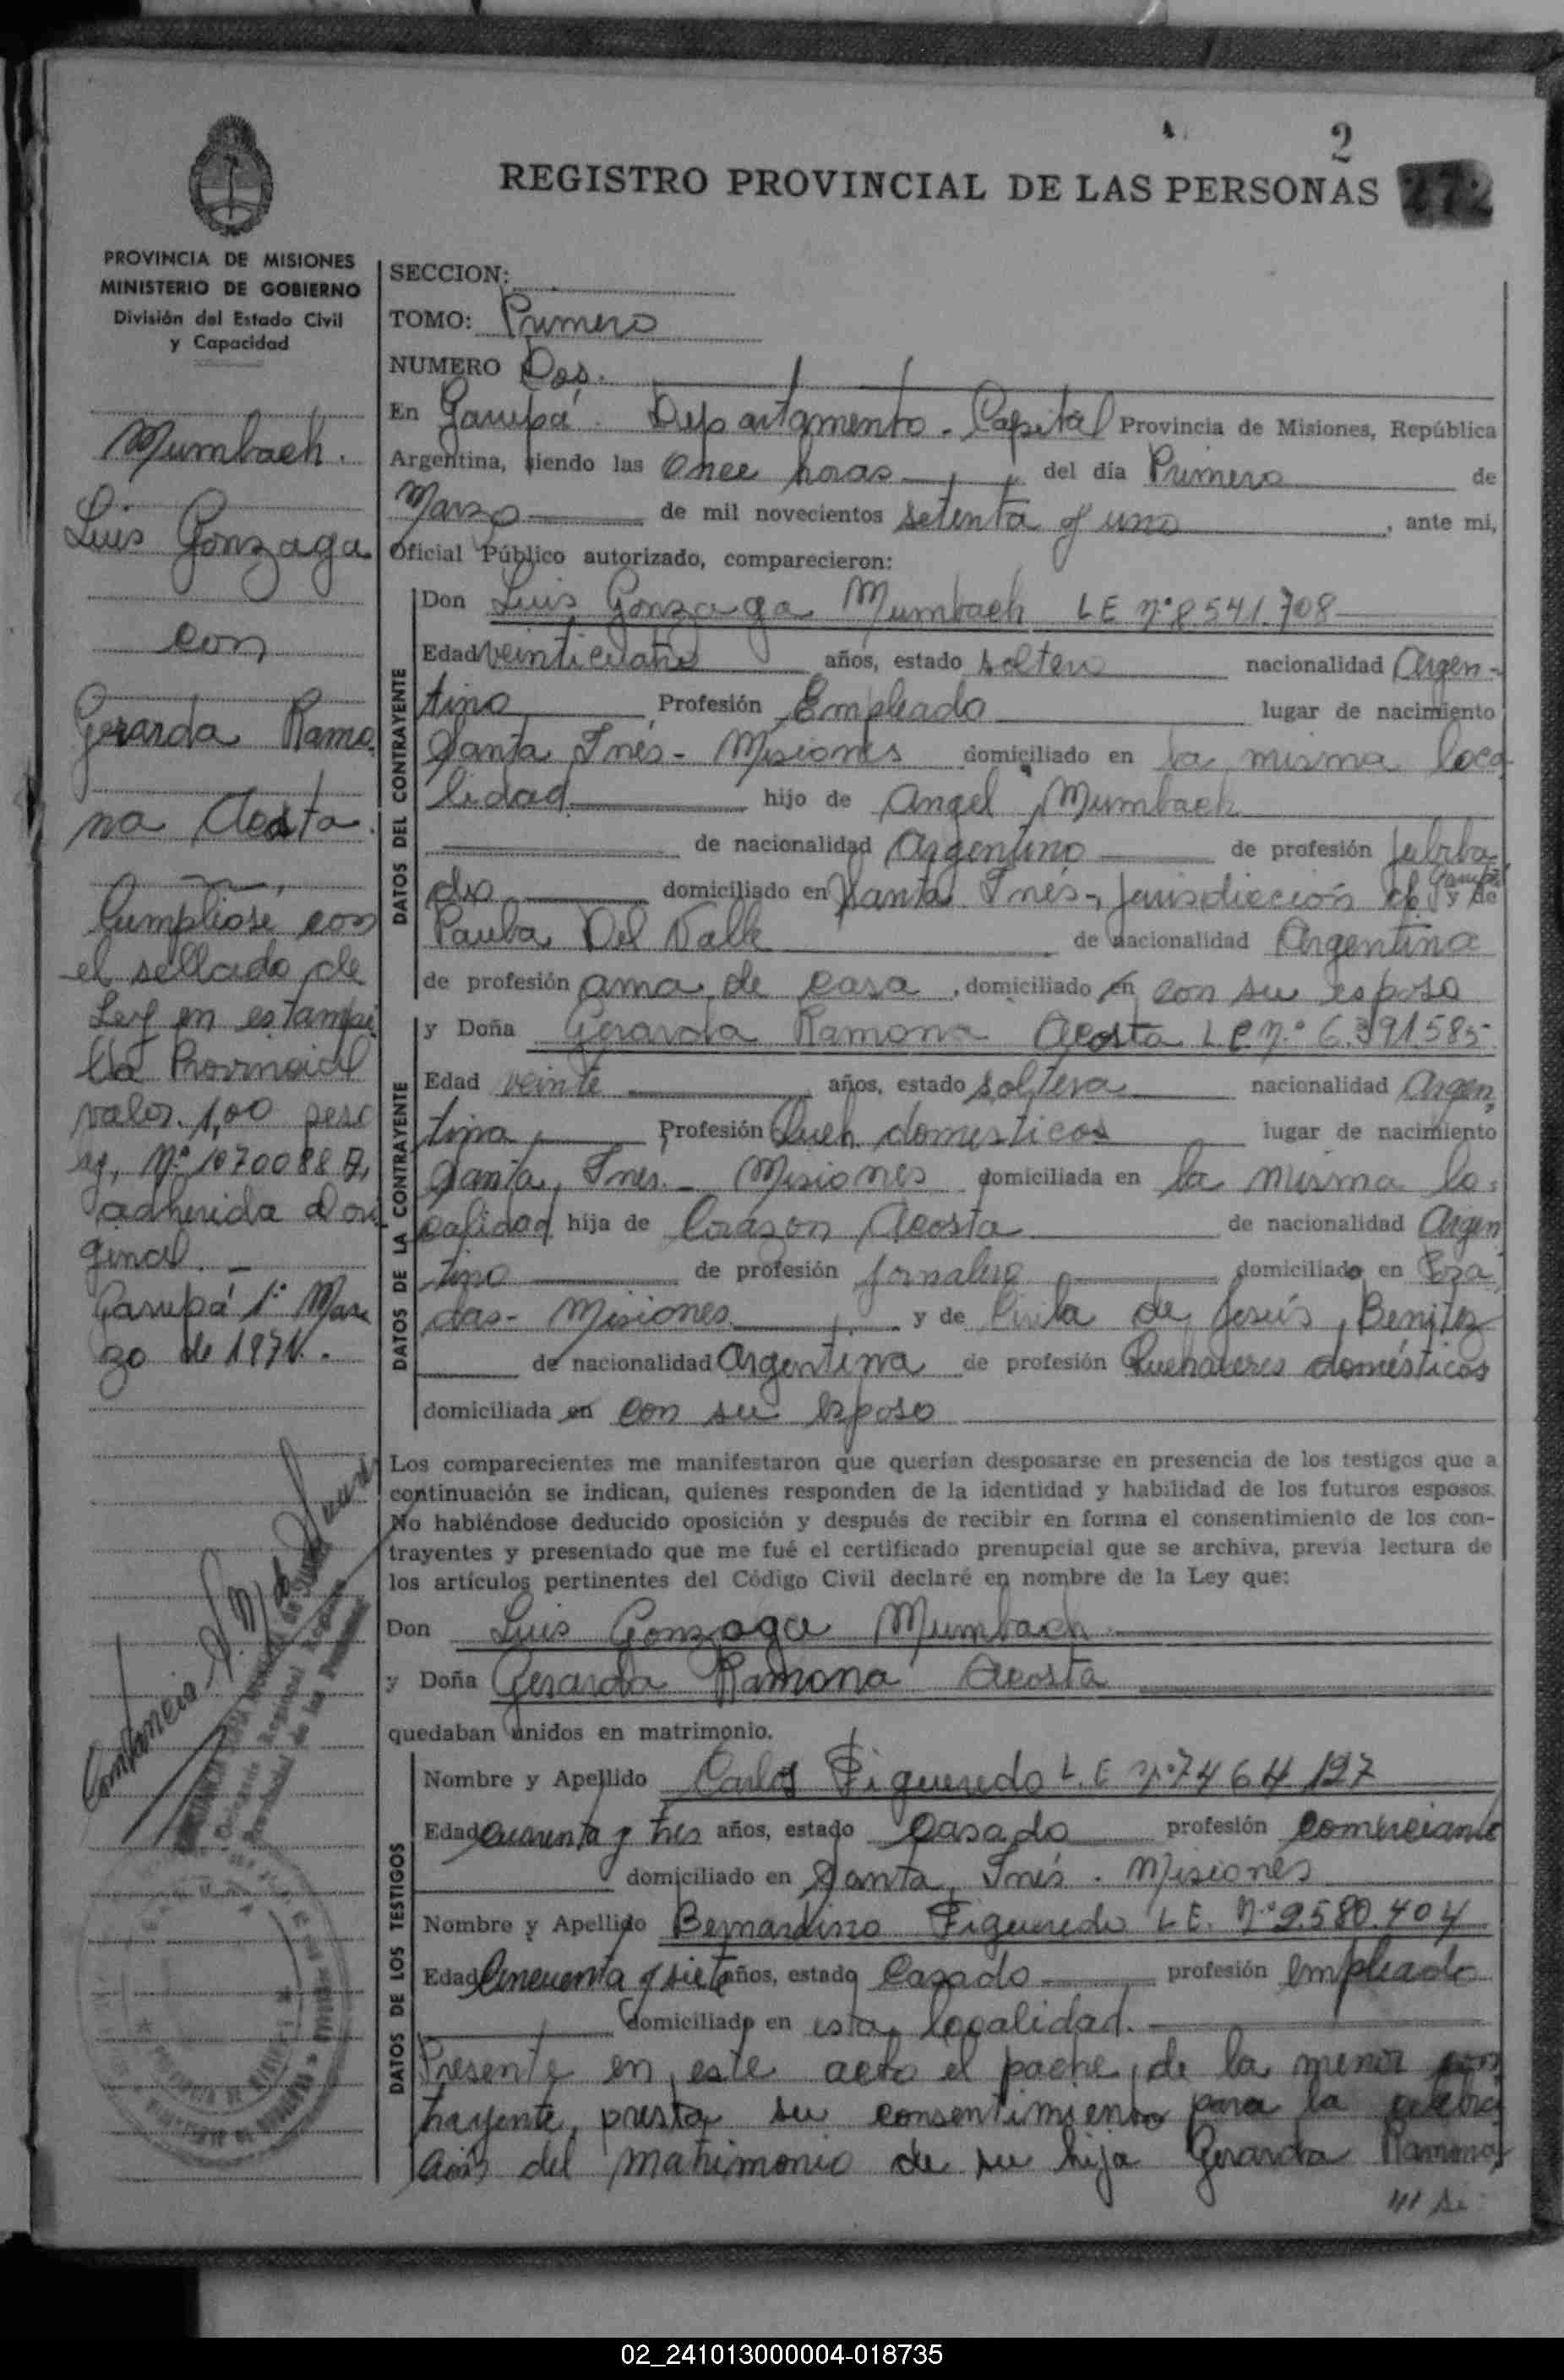 2
REGISTRO PROVINCIAL DE LAS PERSONAS 272
PROVINCIA DE MISIONES
MINISTERIO DE GOBIERNO
División del Estado Civil
y Capacidad
Mumbach.
Luis Gonzaga
con
Gerarda Ramo
na Acosta.
Cumpliose con
el sellado de
Ley en estampi
lla Provincial
valor 1,00 peso
Nº 1070088
adherida al ori
ginal. -
Garupá 1º Mar
zo de 1971.-
SECCION:
TOMO: Primero
NUMERO Dos.
En Garupá. Departamento - Capital Provincia de Misiones, República
Argentina, siendo las Once horas del día Primero de
Marzo de mil novecientos setenta y uno, ante mi,
Oficial Público autorizado, comparecieron:
DATOS DEL CONTRAYENTE
Don Luis Gonzaga Mumbach LE Nº 8.541.708
Edad veinticuatro años, estado soltero nacionalidad Argen-
tino Profesión Empleado lugar de nacimiento
Santa Inés - Misiones domiciliado en la misma loca
lidad hijo de Angel Mumbach
de nacionalidad Argentino de profesión Jubila
do domiciliado en Santa Inés-, Jurisdicción de Garupá y de
Paula Del Valle de nacionalidad Argentina
de profesión ama de casa, domiciliado en con su esposo
DATOS DE LA CONTRAYENTE
y Doña Gerarda Ramona Acosta L C Nº 6.391.585
Edad veinte años, estado soltera nacionalidad Argen
tina Profesión Queh. domesticos lugar de nacimiento
Santa Ines.- Misiones domiciliada en la misma lo-
calidad hija de Corazon Acosta de nacionalidad Argen
tino de profesión Jornalero domiciliado en Posa
das- Misiones y de de Jesús Benitez
de nacionalidad Argentina de profesión Quehaceres domésticos
domiciliada en con su esposo
Los comparecientes me manifestaron que querían desposarse en presencia de los testigos que a
continuación se indican, quienes responden de la identidad y habilidad de los futuros esposos.
No habiéndose deducido oposición y después de recibir en forma el consentimiento de los con-
trayentes y presentado que me fué el certificado prenupcial que se archiva, previa lectura de
los artículos pertinentes del Código Civil declaré en nombre de la Ley que:
Don Luis Gonzaga Mumbach
y Doña Gerarda Ramona Acosta
quedaban unidos en matrimonio.
DATOS DE LOS TESTIGOS
Nombre y Apellido Carlos Figueredo L.E Nº 7464127
Edad cuarenta y tres años, estado casado profesión comerciante
domiciliado en Santa Inés. Misiones
Nombre y Apellido Bernardino Figueredo L E. Nº 9.580.404
Edad Cincuenta y siete años, estado Casado profesión empleado
domiciliado en esta localidad.
Presente en este acto el padre de la menor con
trayente, presta su consentimiento para la celebra
ción del matrimonio de su hija Gerarda Ramona
02_241013000004-018735